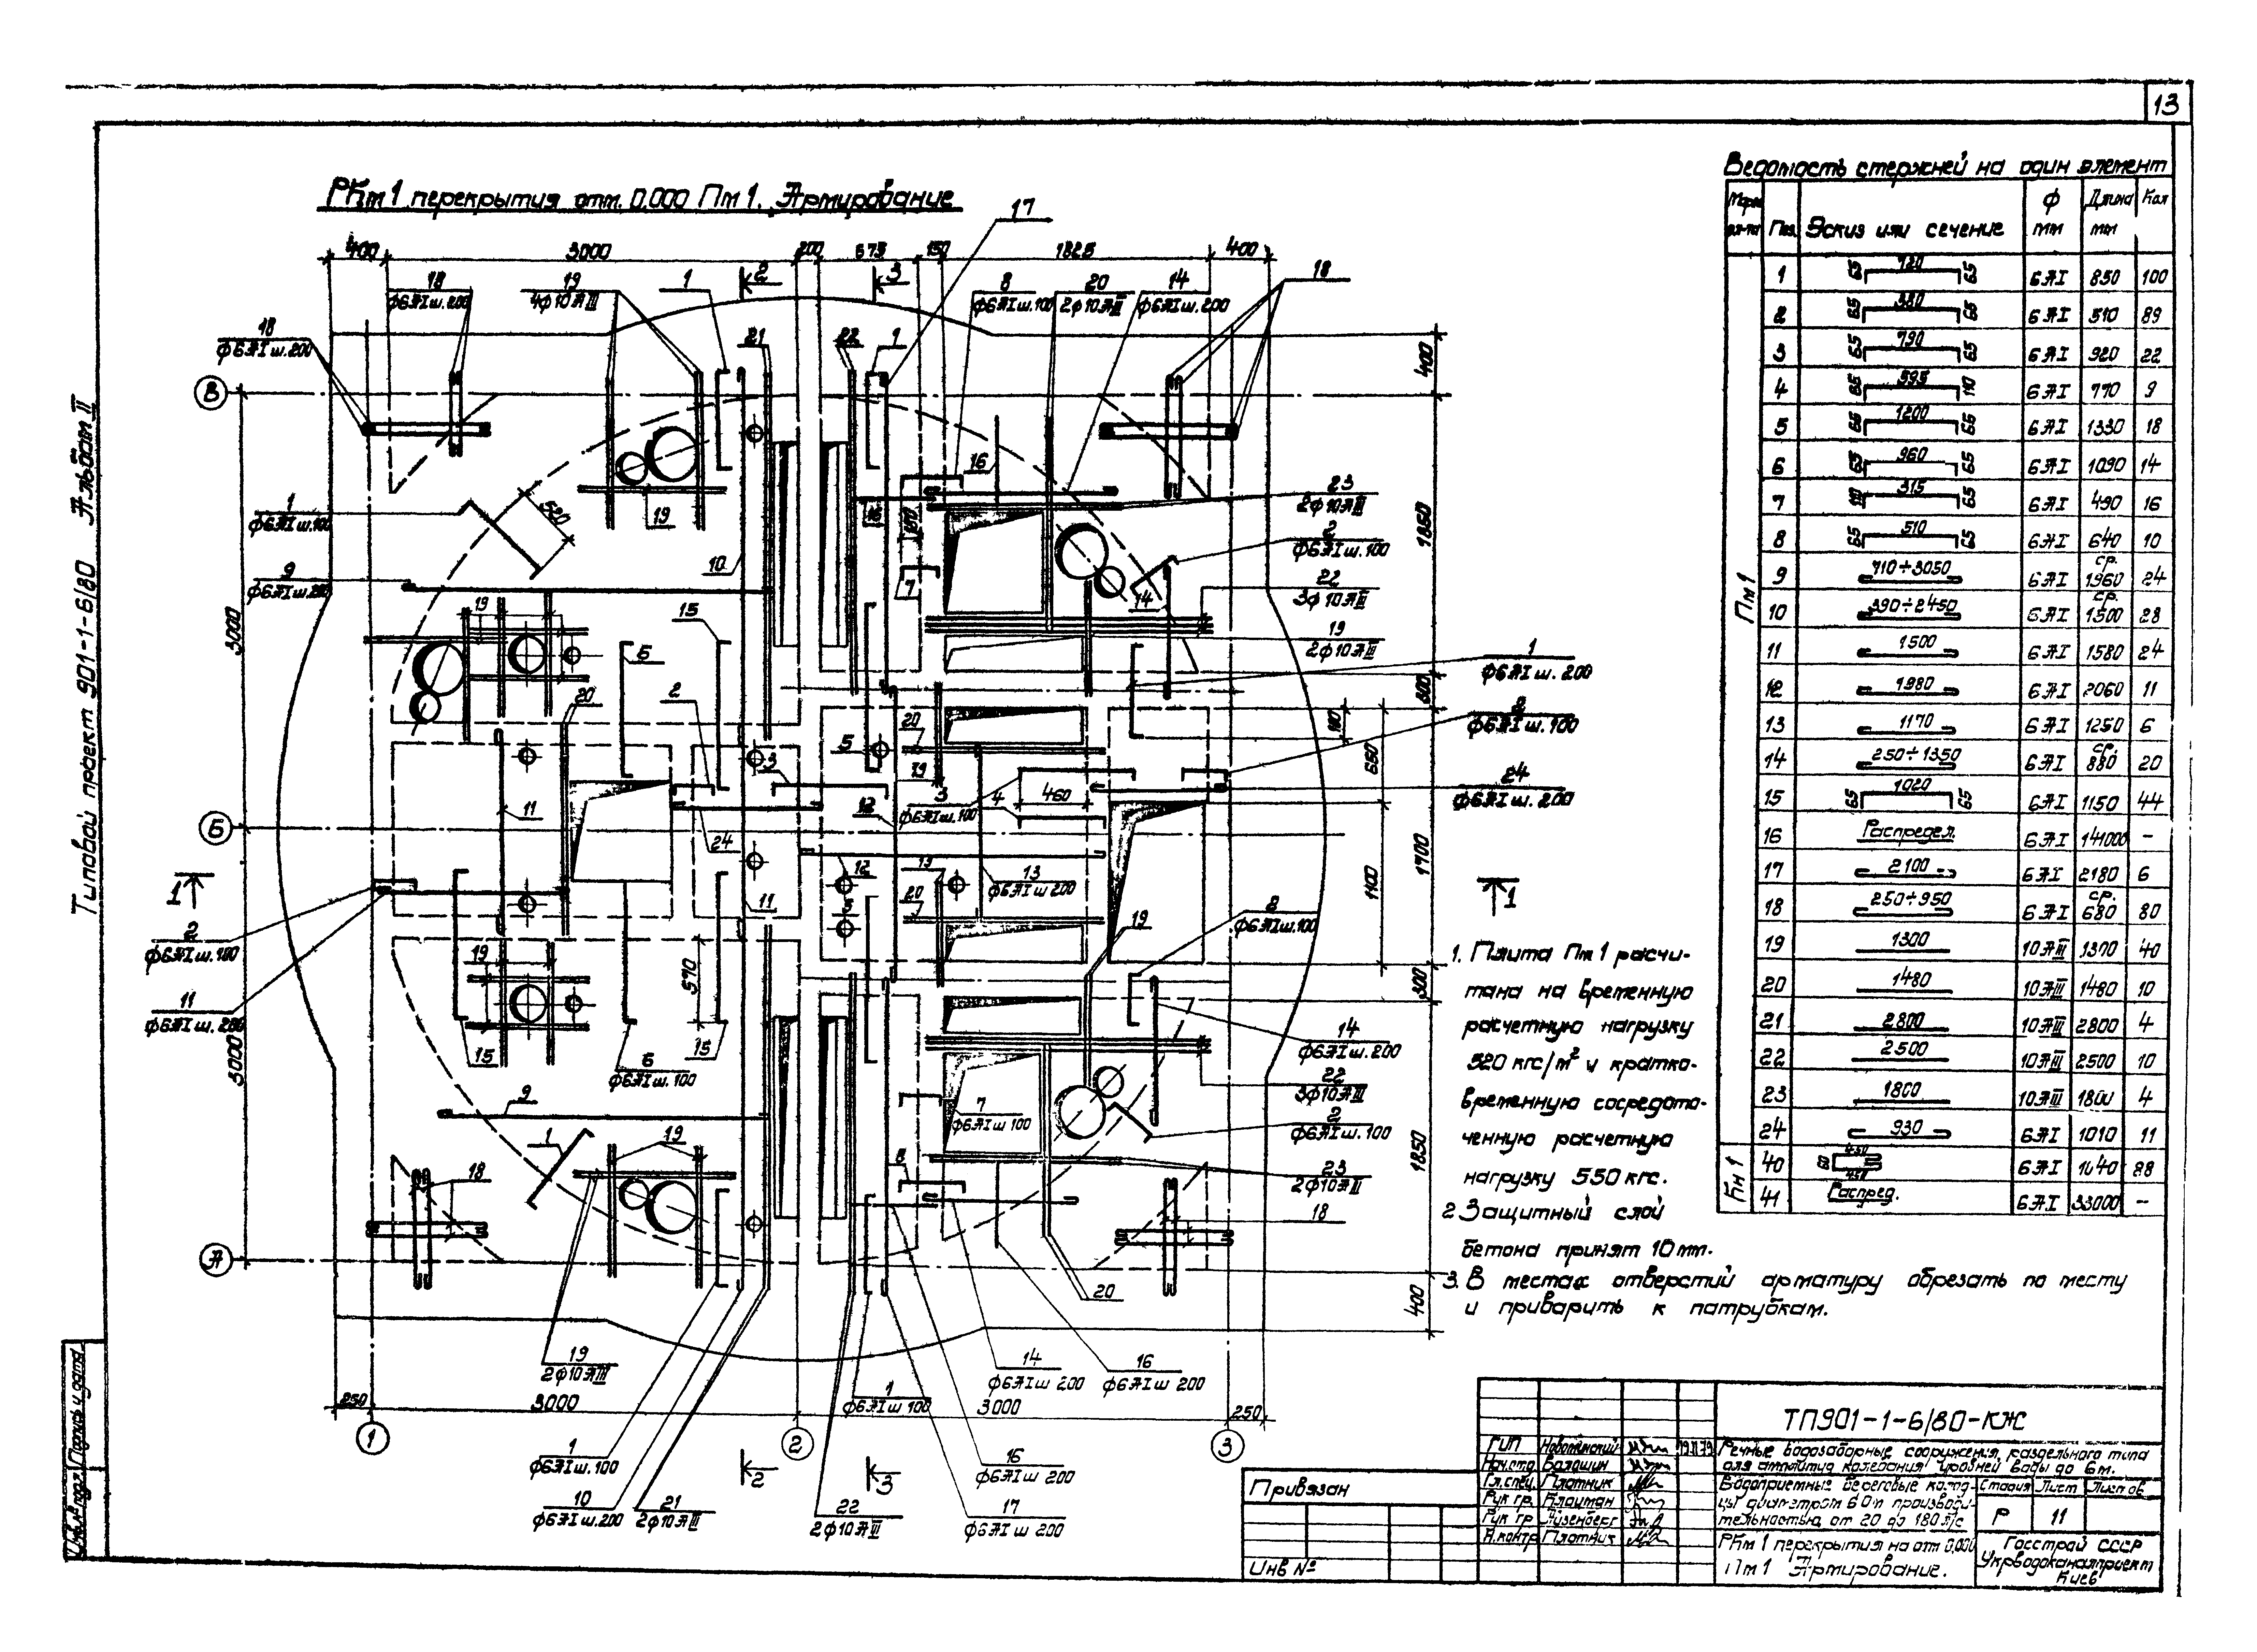 13
Типовой проект 901-1-6/80 Альбом II
РКт1 перекрытия отм. 0.000 Пм1. Армирование
400 3000 200 675 150 1825 400
17
18
ф6АI ш.200
19
4ф10АIII
1
2
3
8
ф6АI ш.100
20
2ф10АIII
14
ф6АI ш.200
18
18
ф6АI ш.200
21
22
1
В
1
ф6АI ш.100
520
9
16
19
10
7
23
2ф10АIII
2
ф6АI ш.100
22
3ф10АIII
19
2ф10АIII
1
ф6АI ш.200
ф6АI ш.100
24
ф6АI ш.200
400
1850
300
1700
1100
300
1850
400
3000
3000
19
15
6
2
20
5
3
4
460
Б
11
24
12
13
ф6АI ш 200
1
1
2
ф6АI ш.100
11
ф6АI ш.200
570
15
6
ф6АI ш.100
15
19
2
ф6АI ш.100
14
ф6АI ш.200
22
3ф10АIII
2
ф6АI ш.100
23
18
9
1
19
18
7
ф6АI ш 100
А
20
19
2ф10АIII
14
ф6АI ш 200
16
ф6АI ш 200
1
ф6АI ш 100
250 3000 3000 250
1 2 3
1
ф6АI ш.100
10
ф6АI ш.200
21
2ф10АIII
2
3
22
2ф10АIII
16
ф6АI ш 200
17
ф6АI ш 200
Ведомость стержней на один элемент
Марка эл-та Поз. Эскиз или сечение ф мм Длина мм Кол
Пм1
1 65 720 65 6АI 850 100
2 65 380 65 6АI 510 89
3 65 790 65 6АI 920 22
4 65 595 110 6АI 770 9
5 65 1200 65 6АI 1330 18
6 65 960 65 6АI 1090 14
7 110 315 65 6АI 490 16
8 65 510 65 6АI 640 10
9 710÷3050 6АI ср. 1960 24
10 390÷2450 6АI ср. 1500 28
11 1500 6АI 1580 24
12 1980 6АI 2060 11
13 1170 6АI 1250 6
14 250÷1350 6АI ср. 880 20
15 65 1020 65 6АI 1150 44
16 Распредел. 6АI 141000 -
17 2100 6АI 2180 6
18 250÷950 6АI ср. 680 80
19 1300 10АIII 1300 40
20 1480 10АIII 1480 10
21 2800 10АIII 2800 4
22 2500 10АIII 2500 10
23 1800 10АIII 1800 4
24 930 6АI 1010 11
Кн1
40 450 6АI 1040 88
41 Распред. 6АI 33000 -
1. Плита Пм1 рассчи-
тана на временную
расчетную нагрузку
520 кгс/м² и кратко-
временную сосредото-
ченную расчетную
нагрузку 550 кгс.
2 Защитный слой
бетона принят 10мм.
3. В местах отверстий арматуру обрезать по месту
и приварить к патрубкам.
Привязан
Инв №
Инв. № подл. Подпись и дата
ТП901-1-6/80-КЖ
ГИП
Нач.отд
Гл.спец. Плотник
Рук гр.
Рук гр Айзенберг
Н.контр Плотник
Речные водозаборные сооружения раздельного типа
для амплитуд колебания уровней воды до 6м.
Водоприемные береговые колод-
цы диаметром 6.0м производи-
тельностью от 20 до 180 л/с
Стадия Лист Листов
Р 11
РКт1 перекрытия на отм 0.000
Пм1 Армирование.
Госстрой СССР
Укрводоканалпроект
Киев